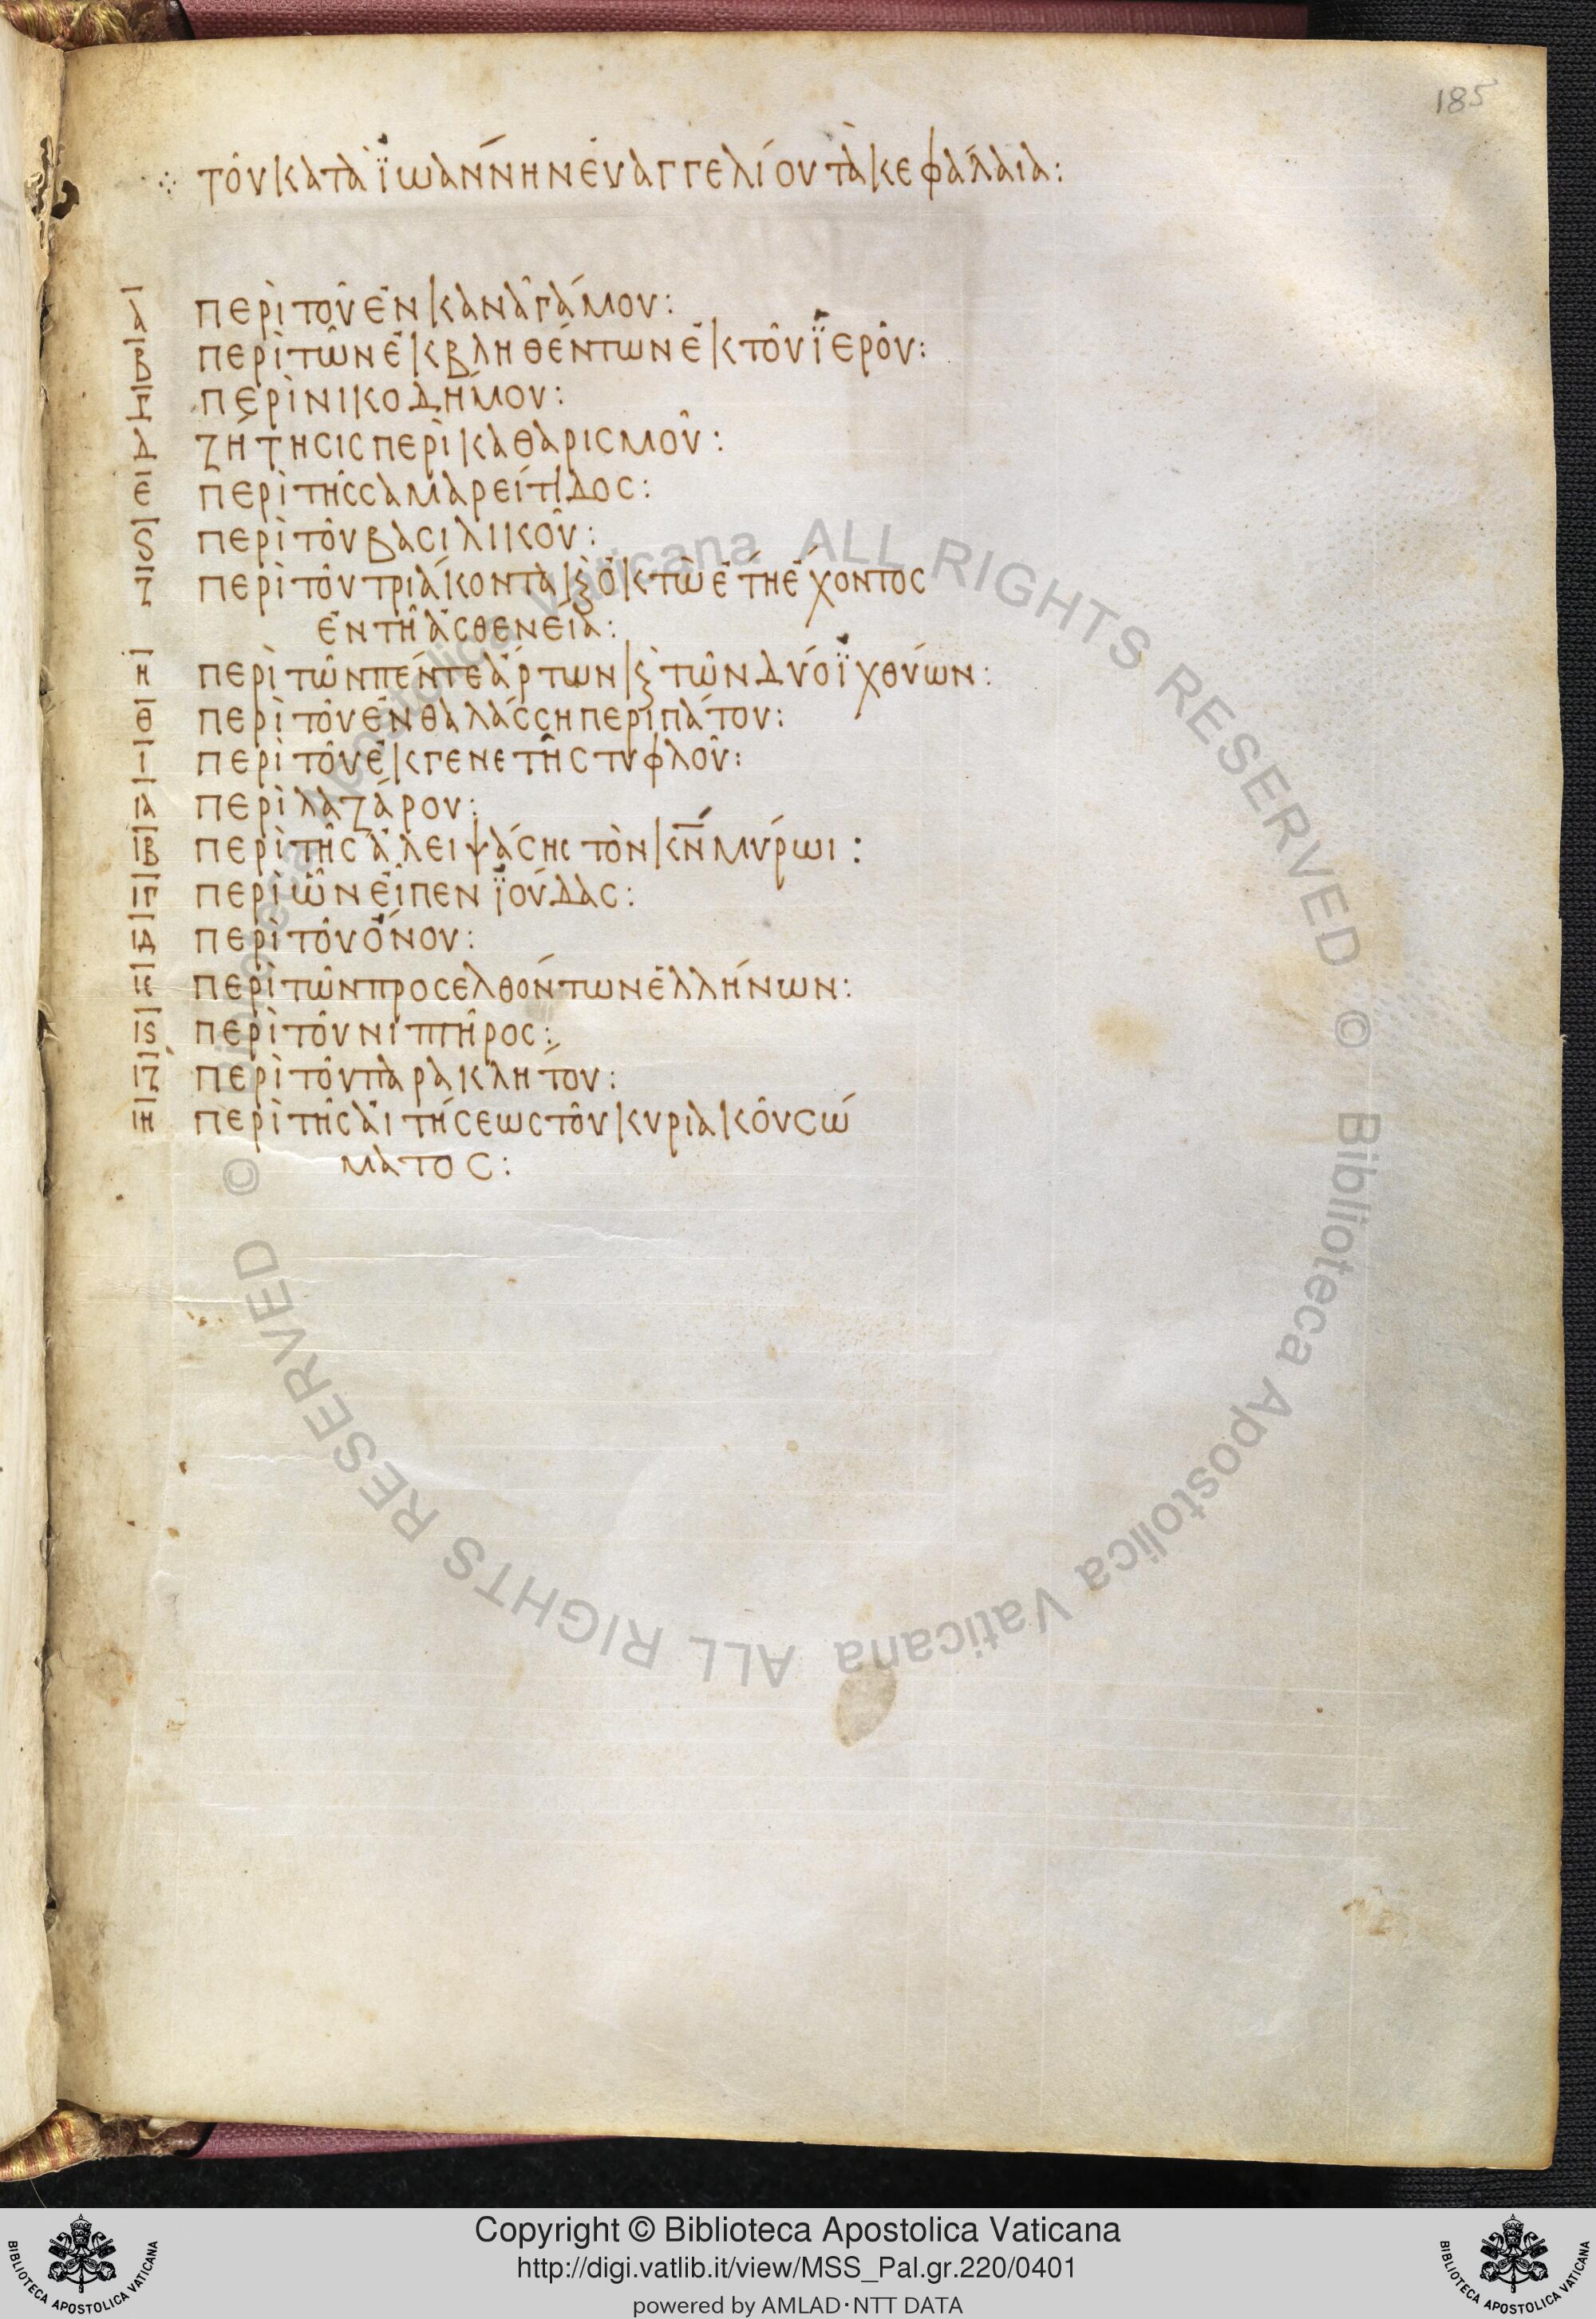 185
⁘ τοῦ κατὰ ϊωάννην ἐυαγγελίου τὰ κεφάλαια:
α περὶ τοῦ ἐν κανᾶ γάμου:
β περὶ τῶν ἐκβληθέντων ἐκ τοῦ ϊεροῦ:
γ περὶ νικοδήμου:
δ ζήτησις περὶ καθαρισμοῦ:
ε περὶ τῆς σαμαρείτιδος:
ϛ περὶ τοῦ βασιλικοῦ:
ζ περὶ τοῦ τριάκοντα κ̀ ὀκτὼ ἔτη ἔχοντος
ἐν τῆ ἀσθενεία:
η περὶ τῶν πέντε ἄρτων κ̀ τῶν δύο ϊχθύων:
θ περὶ τοῦ ἐν θαλάσση περιπάτου:
ι περὶ τοῦ ἐκ γενετῆς τυφλοῦ:
ια περὶ λαζάρου:
ιβ περὶ τῆς ἀλειψάσης τὸν κ̅ν̅ μύρωι:
ιγ περὶ ὧν εἶπεν ϊούδας:
ιδ περὶ τοῦ ὄνου:
ιε περὶ τῶν προσελθόντων ἑλλήνων:
ιϛ περὶ τοῦ νιπτῆρος:
ιζ περὶ τοῦ παρακλήτου:
ιη περὶ τῆς αἰτήσεως τοῦ κυριακοῦ σώ
ματος:
© Biblioteca Apostolica Vaticana ALL RIGHTS RESERVED © Biblioteca Apostolica Vaticana ALL RIGHTS RESERVED
BIBLIOTECA APOSTOLICA VATICANA
Copyright © Biblioteca Apostolica Vaticana
http://digi.vatlib.it/view/MSS_Pal.gr.220/0401
powered by AMLAD·NTT DATA
BIBLIOTECA APOSTOLICA VATICANA